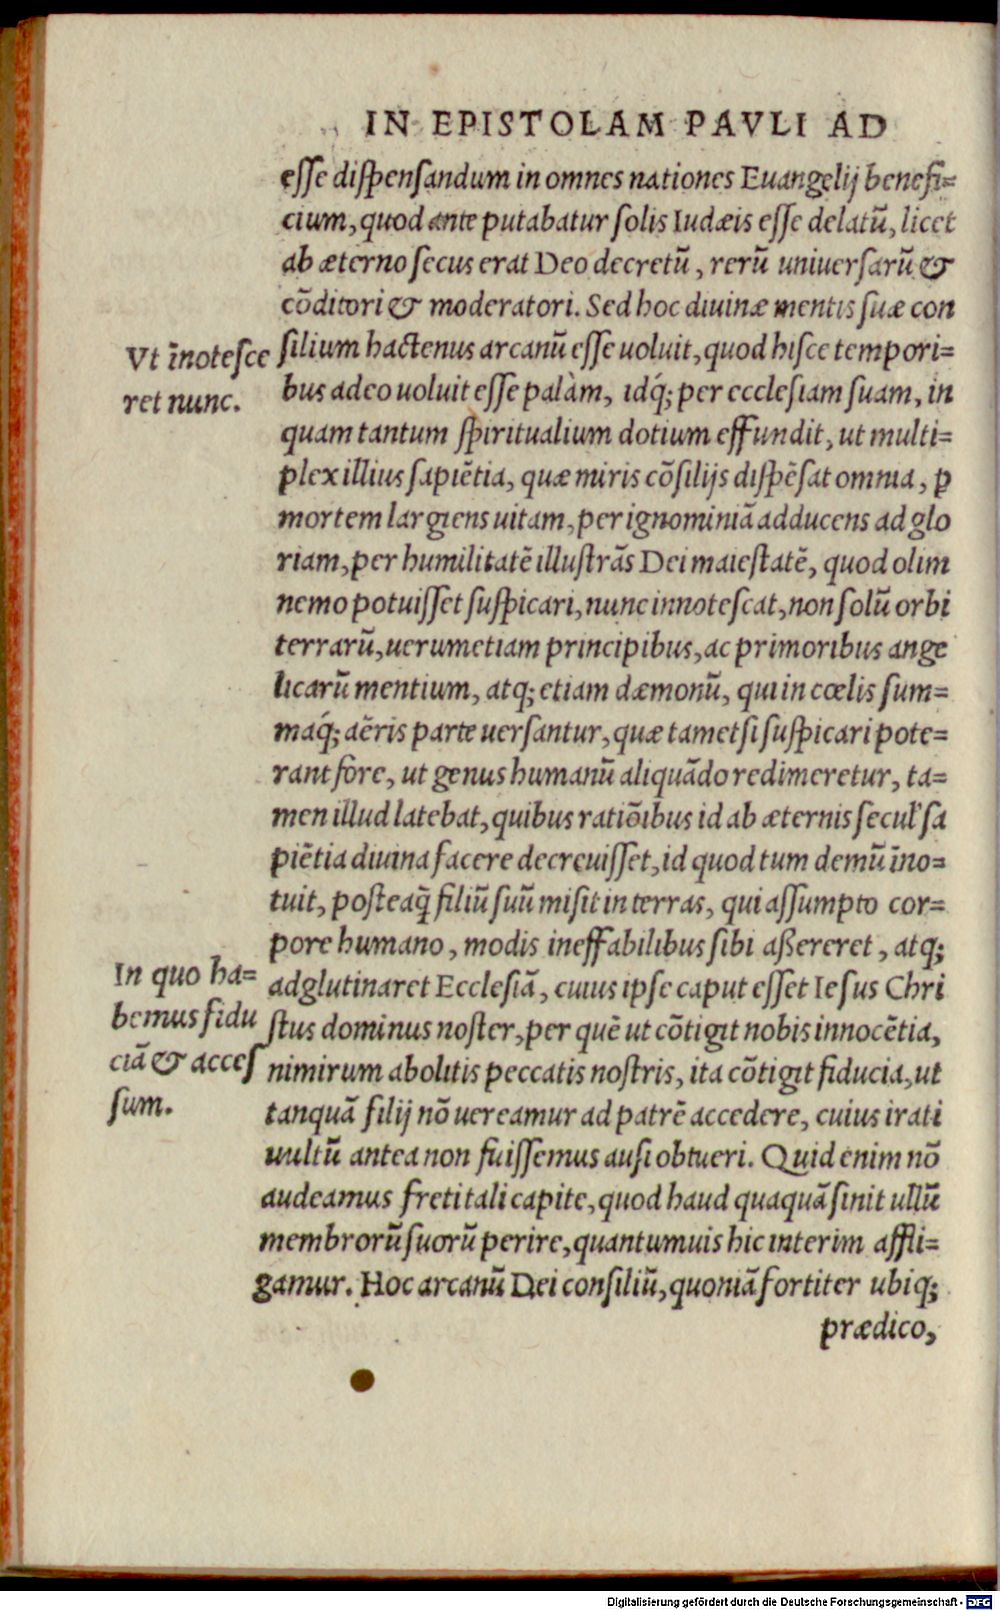 IN EPISTOLAM PAVLI AD
esse dispensandum in omnes nationes Euangelij benefi=
cium, quod ante putabatur solis Iudæis esse delatū, licet
ab æterno secus erat Deo decretū, rerū uniuersarū &
cōditori & moderatori. Sed hoc diuinæ mentis suæ con
Vt īnotesce
ret nunc.
silium hactenus arcanū esse uoluit, quod hisce tempori=
bus adeo uoluit esse palàm, idq́; per ecclesiam suam, in
quam tantum spiritualium dotium effundit, ut multi=
plex illius sapiētia, quæ miris cōsilijs dispēsat omnia, ꝑ
mortem largiens uitam, per ignominiā adducens ad glo
riam, per humilitatē illustrās Dei maiestatē, quod olim
nemo potuisset suspicari, nunc innotescat, non solū orbi
terrarū, uerumetiam principibus, ac primoribus ange
licarū mentium, atq; etiam dæmonū, qui in cœlis sum=
maq́; aëris parte uersantur, quæ tametsi suspicari pote=
rant fore, ut genus humanū aliquādo redimeretur, ta=
men illud latebat, quibus ratiōibus id ab æternis secul' sa
piētia diuina facere decreuisset, id quod tum demū īno=
tuit, posteaq̄ filiū suū misit in terras, qui assumpto cor=
pore humano, modis ineffabilibus sibi aßereret, atq;
In quo ha=
bemus fidu
ciā & acces
sum.
adglutinaret Ecclesiā, cuius ipse caput esset Iesus Chri
stus dominus noster, per quē ut cōtigit nobis innocētia,
nimirum abolitis peccatis nostris, ita cōtigit fiducia, ut
tanquā filij nō uereamur ad patrē accedere, cuius irati
uultū antea non fuissemus ausi obtueri. Quid enim nō
audeamus freti tali capite, quod haud quaquā sinit ullū
membrorū suorū perire, quantumuis hic interim affli=
gamur. Hoc arcanū Dei consiliū, quoniā fortiter ubiq;
prædico,
Digitalisierung gefördert durch die Deutsche Forschungsgemeinschaft - DFG